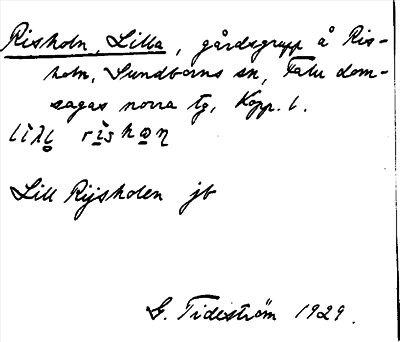 Risholn, Lilla, gårdsgrupp å Ris-
holn, Sundborns sn, Falu dom-
sagas norra tg, Kopp. l.
Lill Rijsholen jb
G. Tideström 1929.